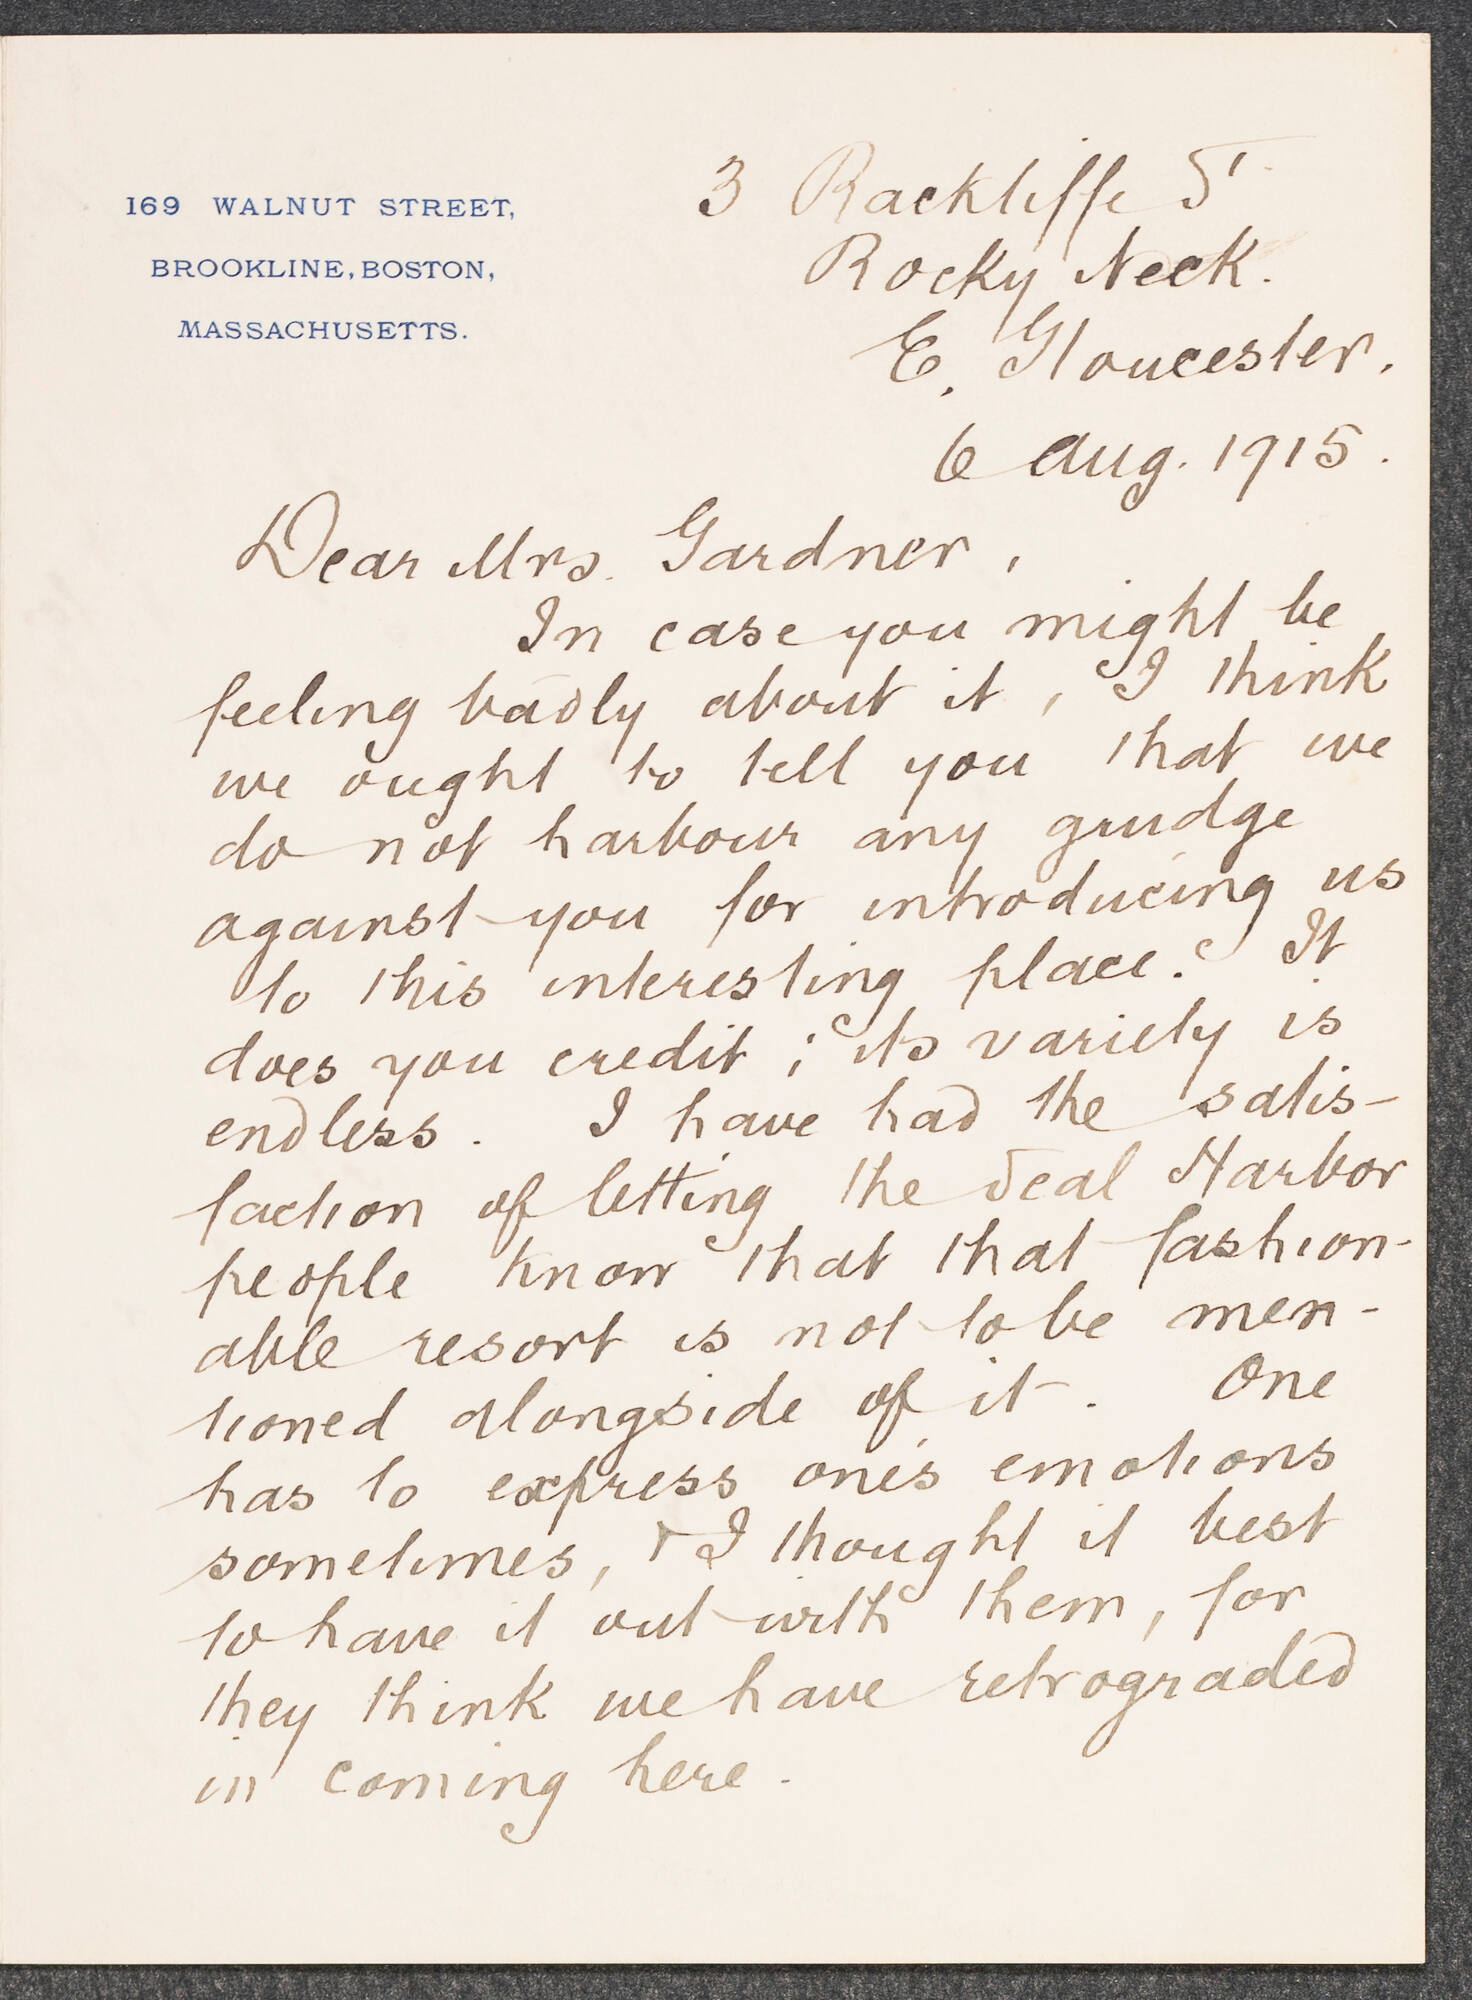 169 WALNUT STREET,
BROOKLINE, BOSTON,
MASSACHUSETTS.
3 Rackliffe St
Rocky Neck.
E. Gloucester.
6 Aug. 1915.
Dear Mrs. Gardner,
In case you might be
feeling badly about it, I think
we ought to tell you that we
do not harbour any grudge
against you for introducing us
to this interesting place. It
does you credit; its variety is
endless. I have had the satis-
faction of letting the Seal Harbor
people know that that fashion-
able resort is not to be men-
tioned alongside of it. One
has to express one's emotions
sometimes, & I thought it best
to have it out with them, for
they think we have retrograded
in coming here.